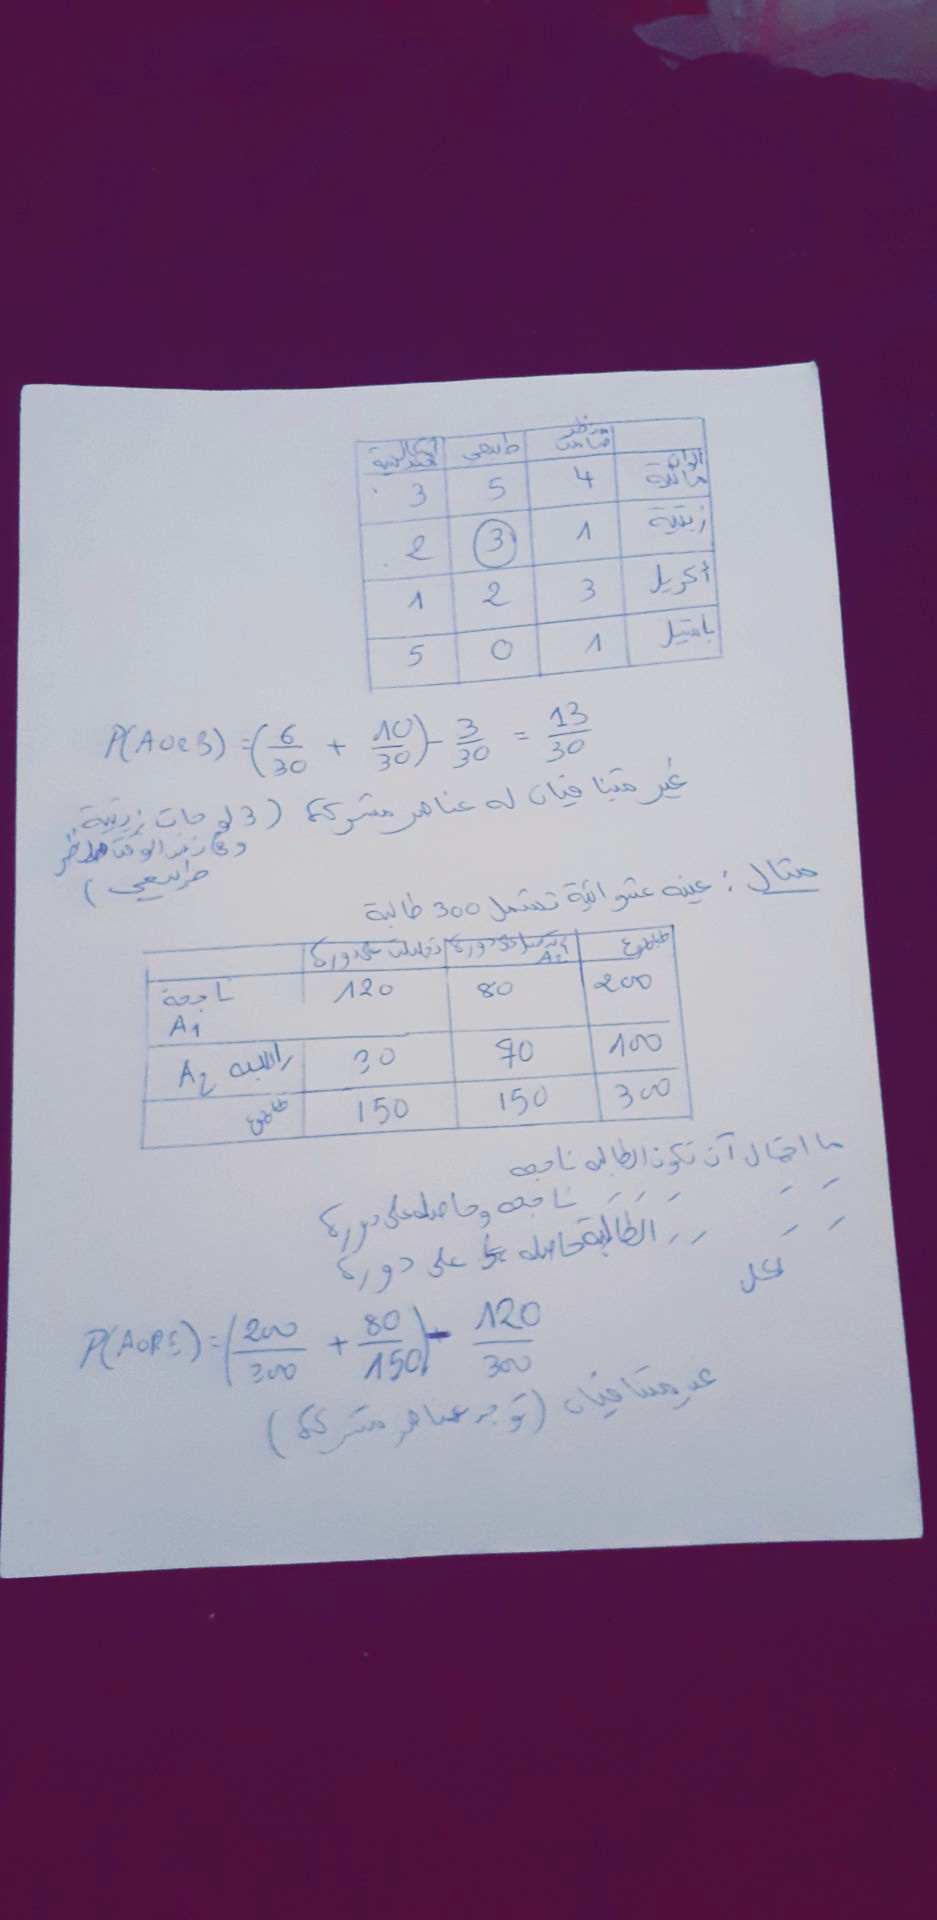 منظر صامت طبيعي أشكال هندسية
ألوان مائية 4 5 3
زيتية 1 3 2
أكريل 3 2 1
باستيل 1 0 5
P(A or B) = (6/30 + 10/30) - 3/30 = 13/30
غير متنافيان له عناصر مشتركة (3 لوحات زيتية
وفي نفس الوقت منظر
طبيعي)
مثال : عينه عشوائية تشمل 300 طالبة
على دورة على دورة A2
ناجحة 120 80 200
A1
راسبه A2 30 70 100
150 150 300
ما احتمال أن تكون الطالبه ناجحه
〃 〃 〃 〃 〃 ناجحه وحاصله على دورة
〃 〃 〃 〃 الطالبة حاصله على دورة
الحل
P(A or E) = (200/300 + 80/150) - 120/300
غير متنافيان (توجد عناصر مشتركة)